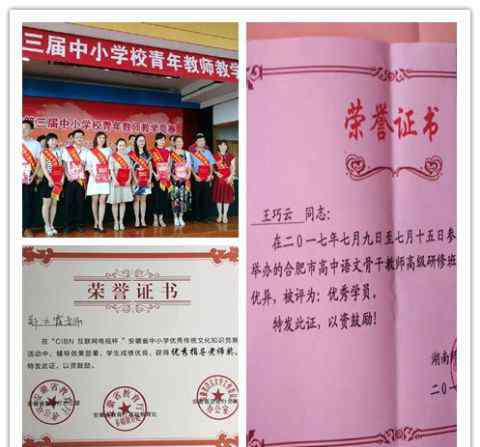 三届中小学校青年教师教学
第三届中小学校青年教师教学竞赛
荣誉证书
王巧云 同志：
在二〇一七年七月九日至七月十五日参
举办的合肥市高中语文骨干教师高级研修班
优异，被评为：优秀学员。
特发此证，以资鼓励！
湖南师
二〇一
荣誉证书
在“CIBN互联网电视杯”安徽省中小学优秀传统文化知识竞赛
活动中，辅导效果显著，学生成绩优良，获得 优秀指导老师奖。
特发此证，以资鼓励。